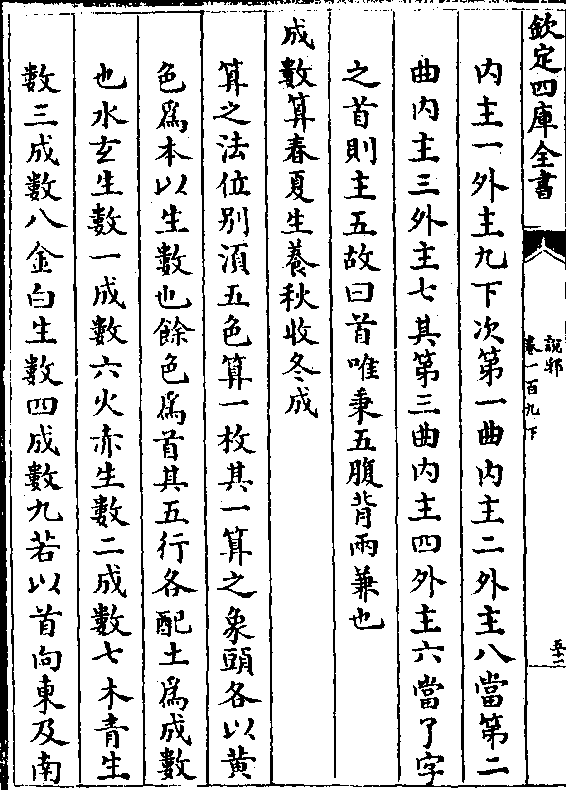 欽定四庫全書
說郛
卷一百九下
至二
內主一外主九下次第一曲內主二外主八當第二
曲內主三外主七其第三曲內主四外主六當了字
之首則主五故曰首唯秉五腹背兩兼也
成數算春夏生養秋收冬成
算之法位別須五色算一枚其一算之象頭各以黃
色爲本以生數也餘色爲首其五行各配土爲成數
也水玄生數一成數六火赤生數二成數七木青生
數三成數八金白生數四成數九若以首向東及南